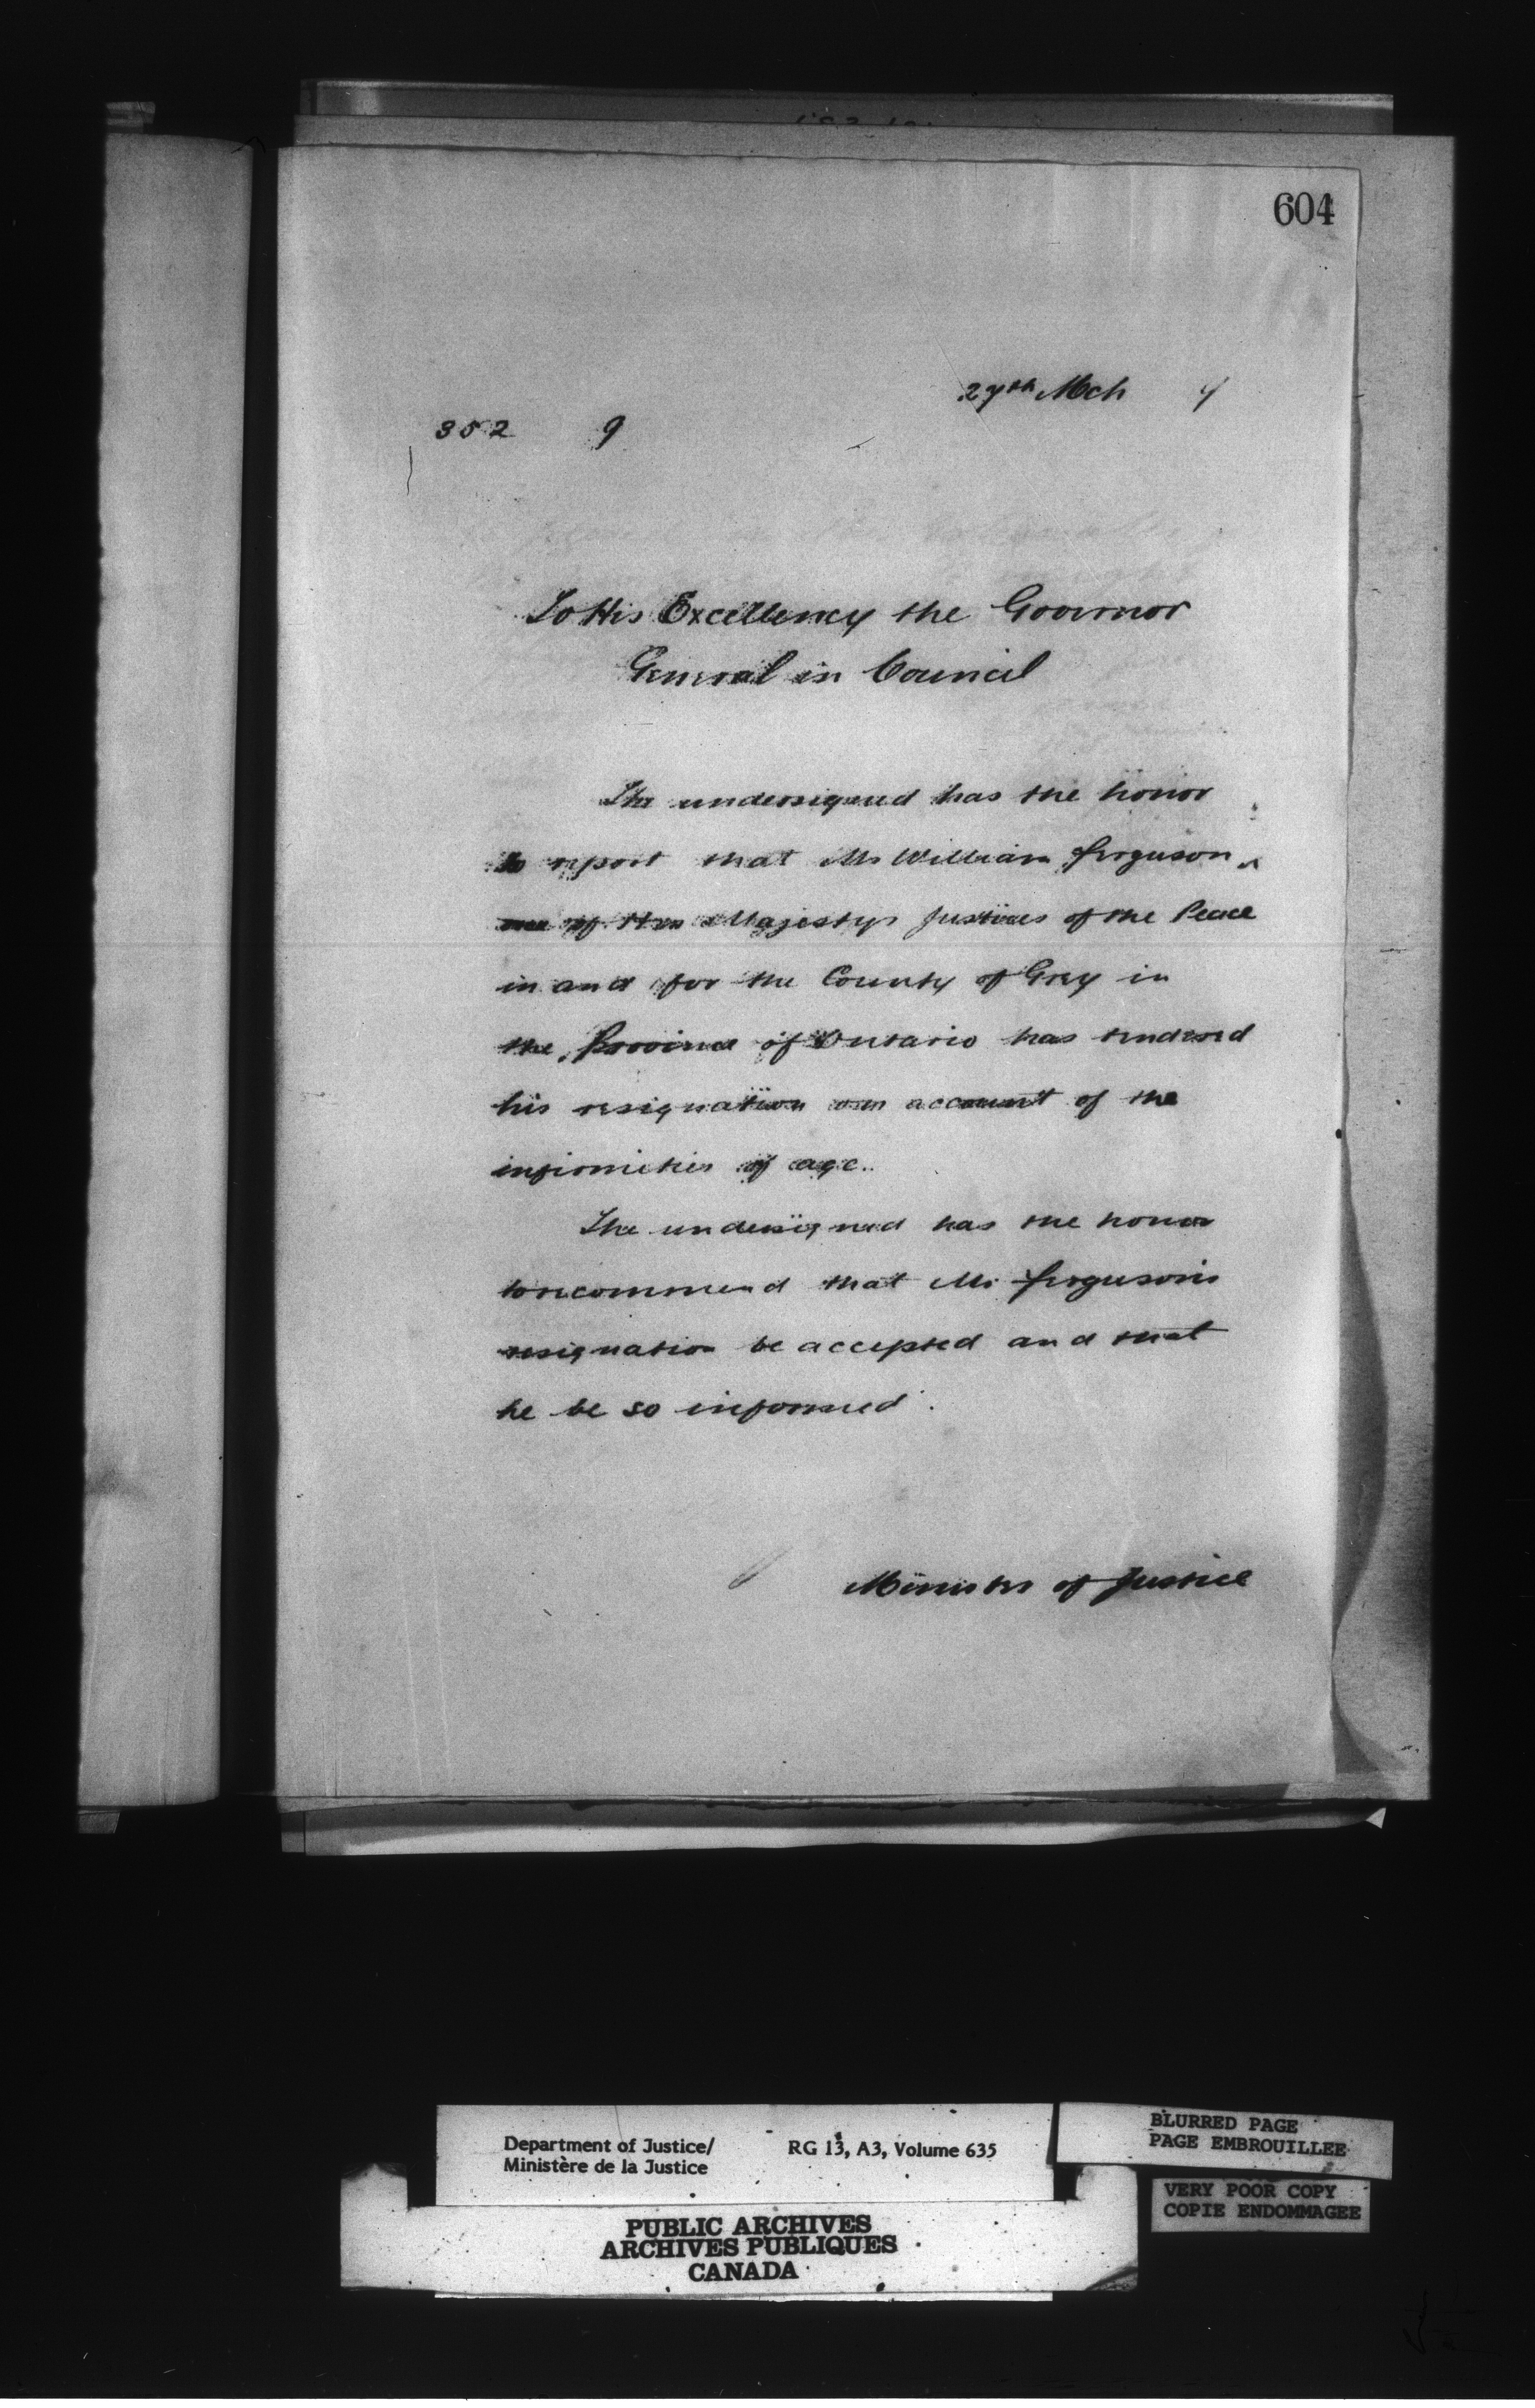 604
27th Mch 9
352 9
To His Excellency the Governor
General in Council
The undersigned has the honor
to report that Mr William Ferguson
one of Her Majestys Justices of the Peace
in and for the County of Grey in
the Province of Ontario has tendered
his resignation on account of the
infirmities of age.
The undersigned has the honor
to recommend that Mr Ferguson's
resignation be accepted and that
he be so informed.
Minister of Justice
Department of Justice/
Ministère de la Justice
RG 13, A3, Volume 635
BLURRED PAGE
PAGE EMBROUILLEE
VERY POOR COPY
COPIE ENDOMMAGEE
PUBLIC ARCHIVES
ARCHIVES PUBLIQUES
CANADA